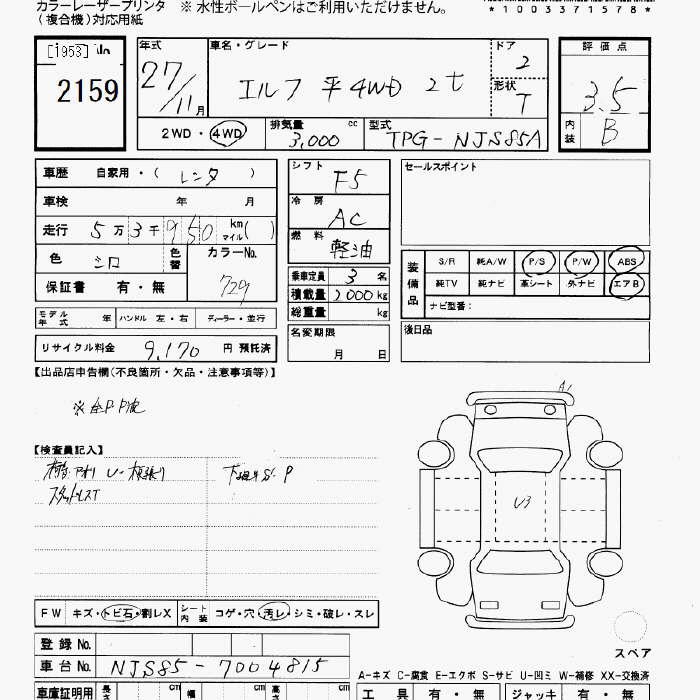 カラーレーザープリンタ ※ 水性ボールペンはご利用いただけません。
(複合機)対応用紙
*1003371578*
[1953]
2159
年式
27/11月
車名・グレード
エルフ 平4WD 2t
ドア
2
形状
T
評価点
3.5
内装
B
2WD・4WD
排気量
3,000 cc
型式
TPG-NJS85A
車歴 自家用・( レンタ )
車検 年 月
走行 5万3千950 km マイル( )
色 シロ 色替
カラーNo.
729
保証書 有・無
シフト
F5
冷房
AC
燃料
軽油
乗車定員 3名
積載量 2000kg
総重量 kg
名変期限
月 日
セールスポイント
装備品
S/R 純A/W P/S P/W ABS
純TV 純ナビ 革シート 外ナビ エアB
ナビ型番:
後日品
モデル年式 年 ハンドル 左・右 ディーラー・並行
リサイクル料金 9,170 円 預託済
【出品店申告欄(不良箇所・欠品・注意事項等)】
【検査員記入】
A1
U3
スペア
FW キズ・トビ石・割レX シート内装 コゲ・穴・汚レ・シミ・破レ・スレ
登録No.
車台No. NJS85-7004815
A-キズ C-腐食 E-エクボ S-サビ U-凹ミ W-補修 XX-交換済
車庫証明用 長さ cm 幅 cm 高さ cm
工具 有・無 ジャッキ 有・無